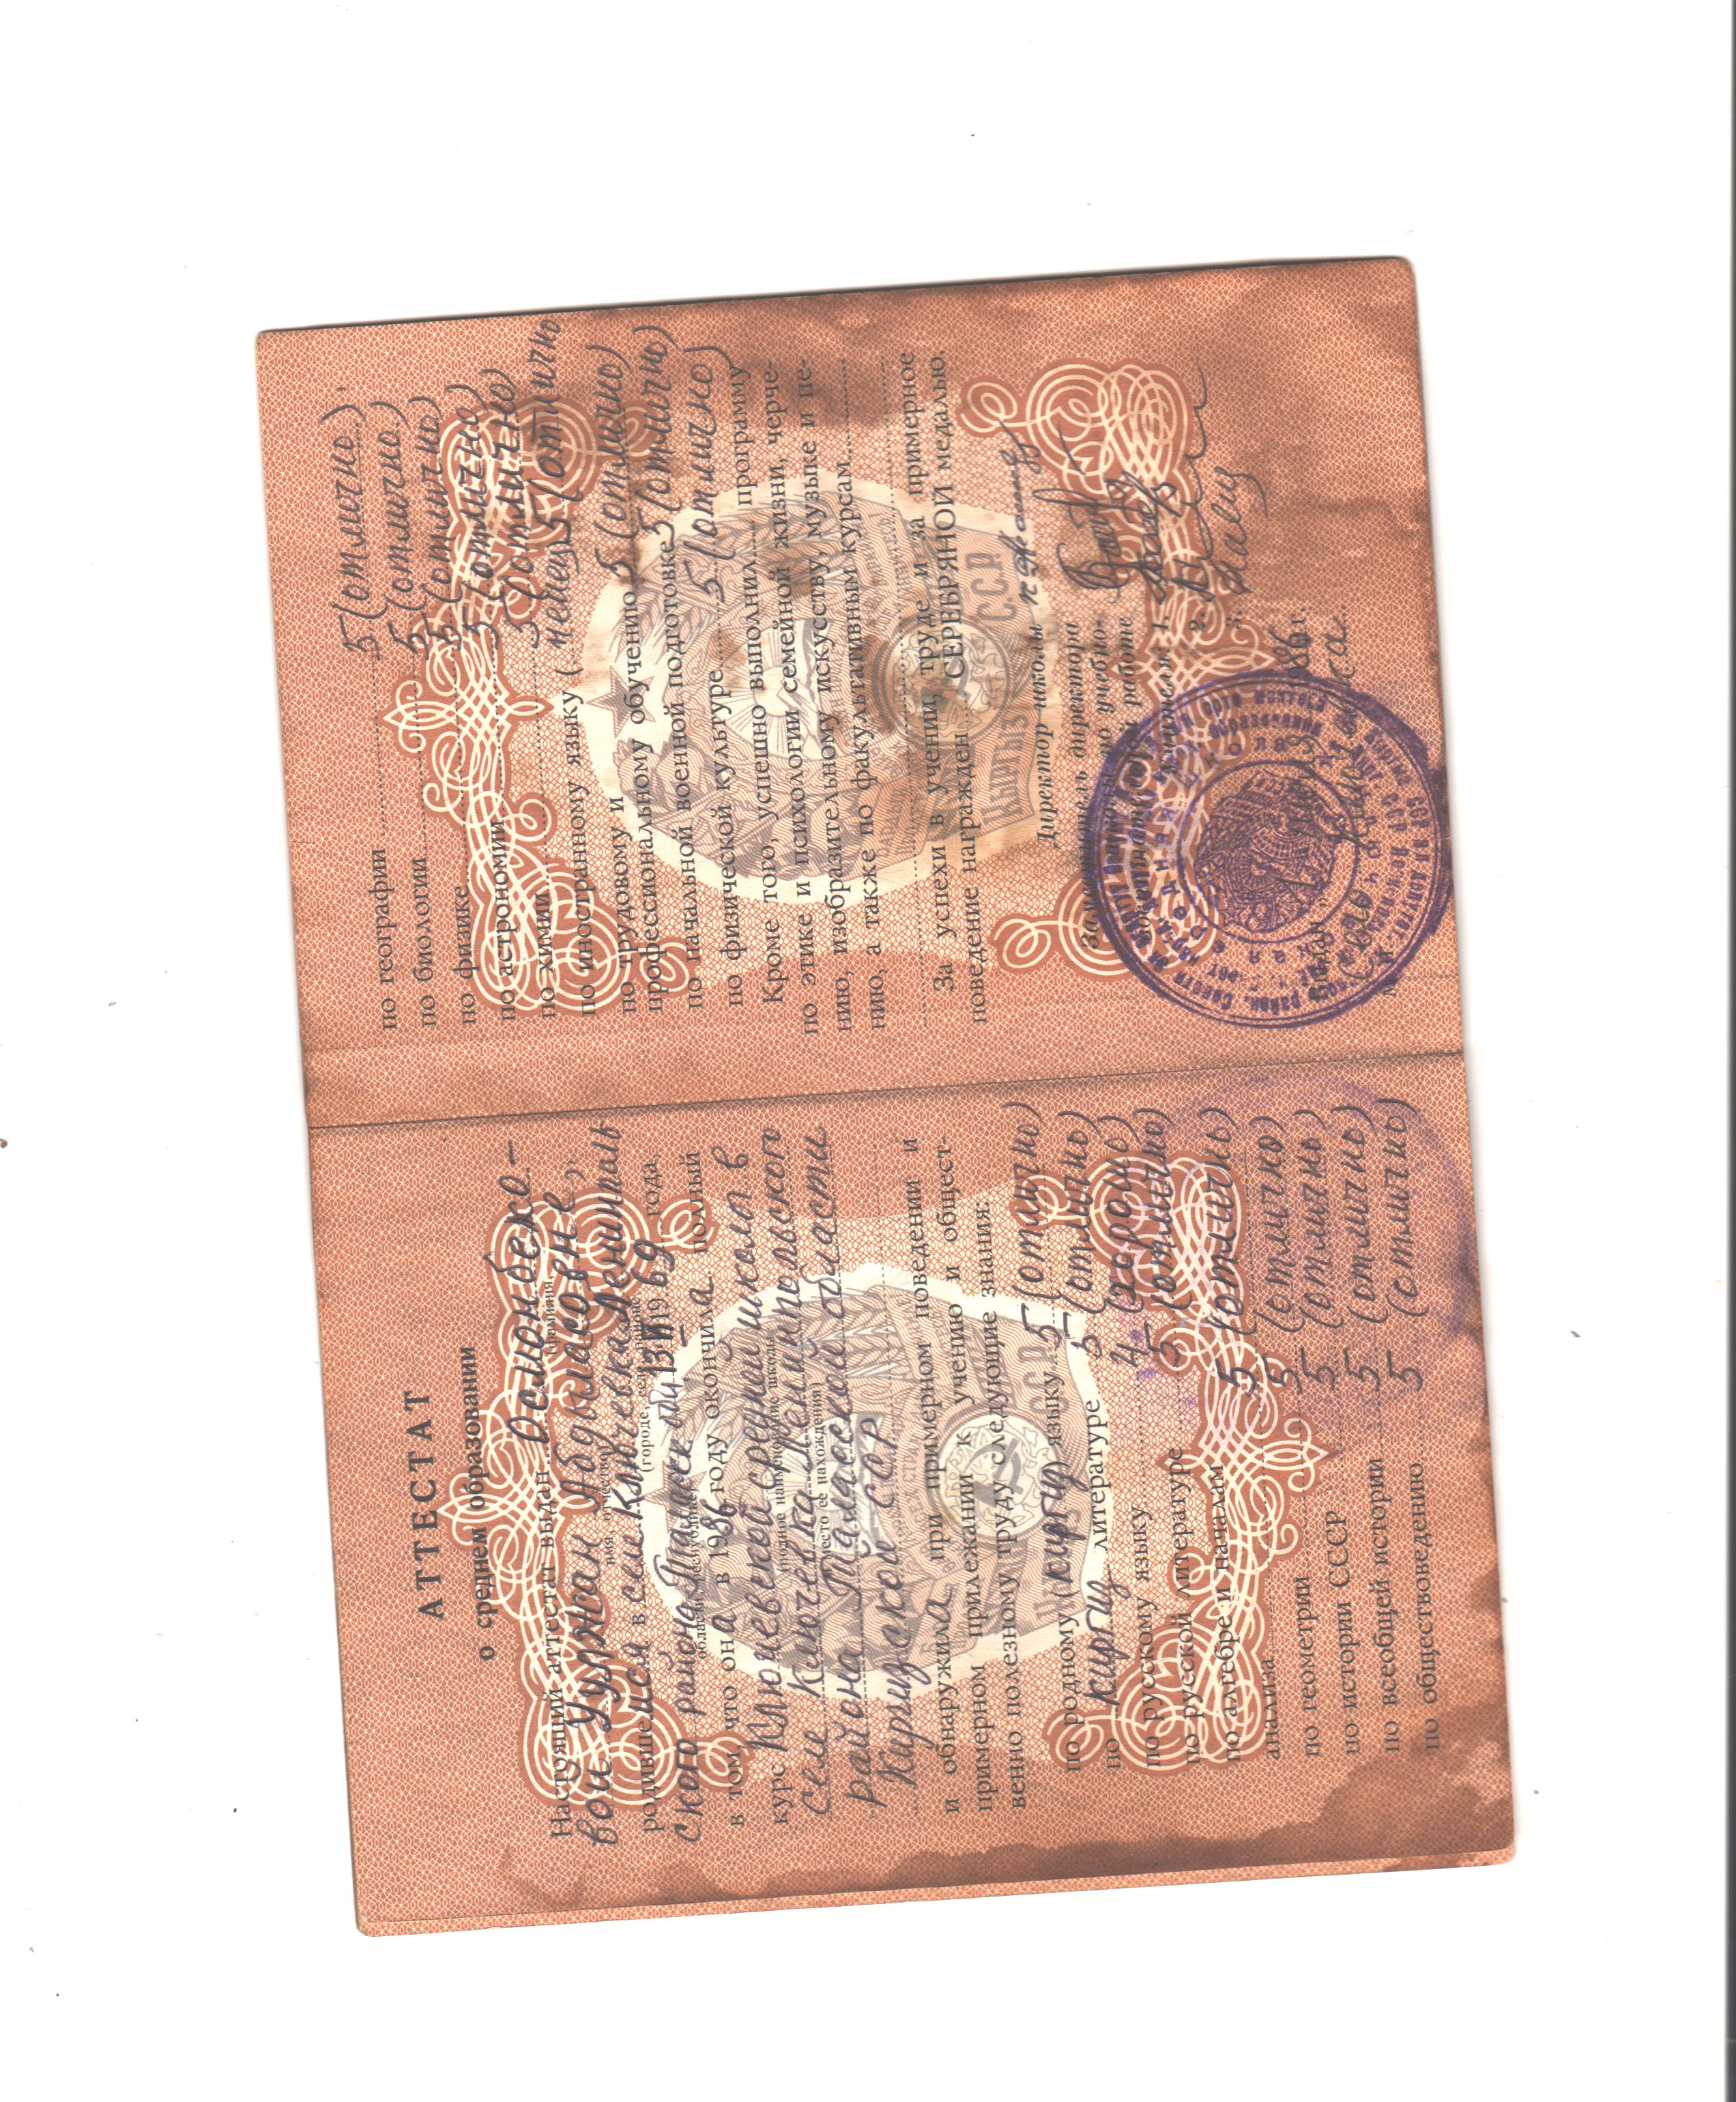 АТТЕСТАТ
о среднем образовании
Настоящий аттестат выдан Осмонбеко-
(фамилия,
вой Уулжан Абдыласовне,
имя, отчество)
родившемся в селе Ключевка Ленинполь
(городе, селе, районе,
ского района Таласск обл 13 VI 19 69 года,
области, республике)
в том, что она в 1986 году окончила полный
курс Ключевской средней школы в
(полное наименование школы
селе Ключевка Ленинпольского
место ее нахождения)
района Таласской области
Киргизской ССР
и обнаружила при примерном поведении и
примерном прилежании к учению и общест-
венно полезному труду следующие знания:
по родному (киргиз) языку 5 (отлично)
по киргиз литературе 5 (отлично)
по русскому языку 4 (хорошо)
по русской литературе 5 (отлично)
по алгебре и началам
анализа 5 (отлично)
по геометрии 5 (отлично)
по истории СССР 5 (отлично)
по всеобщей истории 5 (отлично)
по обществоведению 5 (отлично)
по географии 5 (отлично)
по биологии 5 (отлично)
по физике 5 (отлично)
по астрономии 5 (отлично)
по химии 5 (отлично)
по иностранному языку (немец 5 (отлично
по трудовому и
профессиональному обучению 5 (отлично)
по начальной военной подготовке 5 (отлично)
по физической культуре 5 (отлично)
Кроме того, успешно выполнил программу
по этике и психологии семейной жизни, черче-
нию, изобразительному искусству, музыке и пе-
нию, а также по факультативным курсам
За успехи в учении, труде и за примерное
поведение награжден СЕРЕБРЯНОЙ медалью.
Кыргыз ССР
Директор школы
Заместитель директора
школы по учебно-
воспитательной работе
Учителя: 1.
2.
3.
Выдан „1 июля 1986 г.
Село Ключевка
М. П.